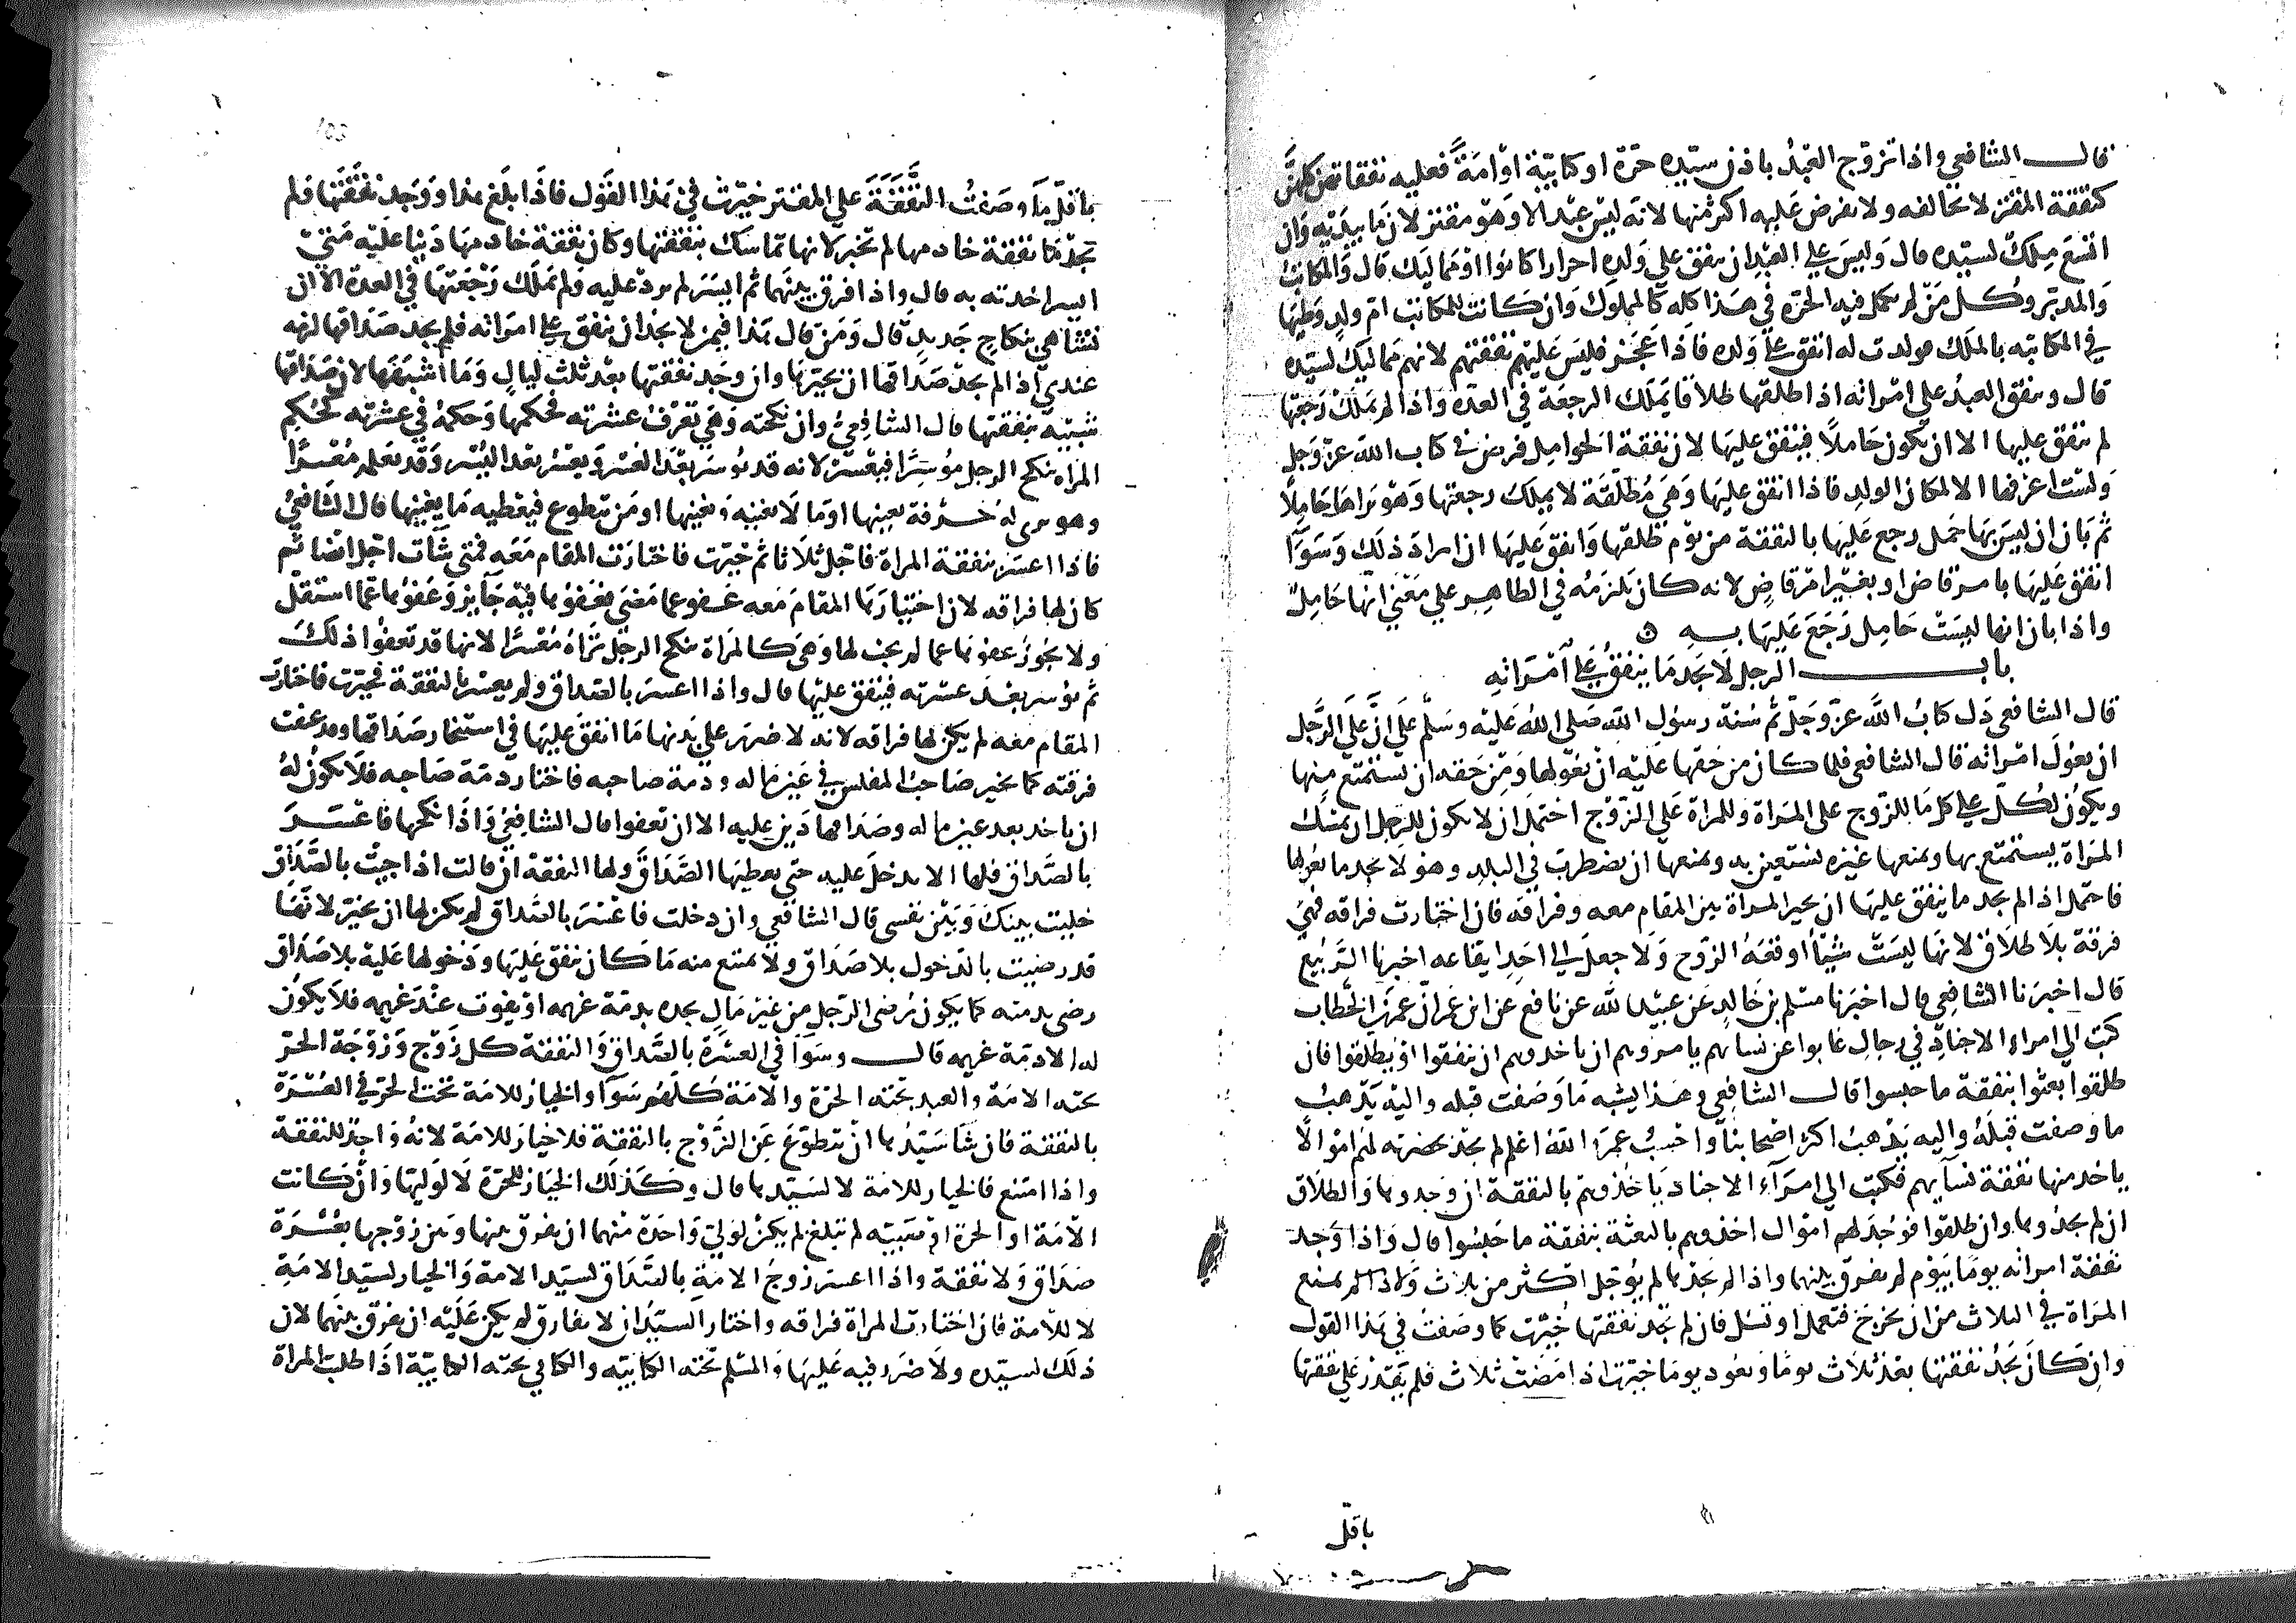 قال الشافعي واذا تزوج العبد باذن سيده حرة او كتابية او امة فعليه نفقاتهن كلهن
كنفقة المقتر لا يخالفه ولا يفرض عليه اكثر منها لانه ليس عبد الا وهو مقتر لان ما بيديه وان
اتسع ملك لسيده قال وليس على العبد ان ينفق على ولده احرارا كانوا او مماليك قال والمكاتب
والمدبر وكل من لم تكمل فيه الحرية في هذا كله كالمملوك وان كانت للمكاتب ام ولد وطيها
في المكاتبه بالملك فولدت له انفق على ولده فاذا عجز فليس عليه نفقتهم لانهم مماليك لسيده
قال وينفق العبد على امراته اذا طلقها طلاقا يملك الرجعة في العدة واذا لم يملك رجعتها
لم ينفق عليها الا ان تكون حاملا فينفق عليها لان نفقة الحوامل فرض في كتاب الله عز وجل
ولست اعرفها الا لمكان الولد فاذا انفق عليها وهي مطلقة لا يملك رجعتها وهو يراها حاملا
ثم بان ان ليس بها حمل رجع عليها بالنفقة من يوم طلقها وانفق عليها ان اراد ذلك وسوآ
انفق عليها بامر قاض او بغير امر قاض لانه كان يلزمه في الظاهر على معنى انها حامل
واذا بان انها ليست حامل رجع عليها به
باب الرجل لا يجد ما ينفق على امراته
قال الشافعي دل كتاب الله عز وجل ثم سنة رسول الله صلى الله عليه وسلم على ان على الرجل
ان يعول امراته قال الشافعي فلما كان من حقها عليه ان يعولها ومن حقه ان يستمتع منها
ويكون لكل على كل ما للزوج على المراة وللمراة على الزوج احتمل ان لا يكون للرجل ان يمسك
المراة يستمتع بها ويمنعها غيره تستعين به ويمنعها ان تضطرب في البلد وهو لا يجد ما يعولها
فاحتمل اذا لم يجد ما ينفق عليها ان تخير المراة بين المقام معه وفراقه فان اختارت فراقه فهي
فرقة بلا طلاق لانها ليست شيئا اوقعه الزوج ولا جعل الى احد ايقاعه اخبرنا الربيع
قال اخبرنا الشافعي قال اخبرنا مسلم بن خالد عن عبيد الله عن نافع عن ابن عمر ان عمر بن الخطاب
كتب الي امراء الاجناد في رجال غابوا عن نسائهم يامروهم ان ياخدوهم ان ينفقوا او يطلقوا فان
طلقوا بعثوا بنفقة ما حبسوا قال الشافعي وهذا يشبه ما وصفت قبله واليه يذهب
ما وصفت قبله واليه يذهب اكثر اصحابنا واحسب عمر الله اعلم لم يجد بحضرته لهم اموالا
ياخد منها نفقة نسآيهم فكتب الي امرآء الاجناد ياخذوهم بالنفقة ان وجدوها والطلاق
ان لم يجدوها وان طلقوا فوجد لهم اموال اخذوهم بالبعثة بنفقة ما حبسوا قال واذا وجد
نفقة امراته يوما بيوم لم يفرق بينهما واذا لم يجدها لم يؤجل اكثر من ثلاث ولا اذا لم يمنع
المراة في الثلاث من ان تخرج فتعمل او تسل فان لم يجد نفقتها خيرت كما وصفت في هذا القول
وان كان يجد نفقتها بعد ثلاث يوما ويعود يوما خيرت اذا مضت ثلاث فلم يقدر على نفقتها
باقل
باقل ما وصفت النفقة على المقتر خيرت في هذا القول فاذا بلغ هذا ووجد نفقتها ولم
يجد نفقة خادمها لم تخير لانها تماسك بنفقتها وكان نفقة خادمها دينا عليه متى
ايسر اخدته به قال واذا افرق بينهما ثم ايسر لم يرد عليه ولم يملك رجعتها في العدة الا ان
تشا هي بنكاح جديد قال ومن قال هذا فيمن لا يجد ان ينفق على امراته فلم يجد صداقها لزمه
عندي اذا لم يجد صداقها ان يخيرها وان وجد نفقتها بعد ثلث ليال وما اشبهها لان صداقها
شبيه بنفقتها قال الشافعي وان نكحته وهي تعرف عسرته فحكمها وحكمه في عسرته كحكم
المراة تنكح الرجل موسرا فيعسر لانه قد يوسر بعد العسر ويعسر بعد اليسر وقد تعلمه معسرا
وهو يرى له حرفة تغنيها او ما لا تغنيه وتغنيها او من يتطوع فيعطيه ما يغنيها قال الشافعي
فاذا اعسر بنفقة المراة فاجل ثلاثا ثم خيرت فاختارت المقام معه فمتى شآت اجل ايضا ثم
كان لها فراقه لان اختيارها المقام معه عفو عما مضى فعفوها فيه جآيز وعفوها عما استقبل
ولا يجوز عفوها عما لم يجب لها وهي كالمراة تنكح الرجل تراه معسرا لانها قد تعفوا ذلك
ثم يوسر بعد عسرته فينفق عليها قال واذا اعسر بالصداق ولم يعسر بالنفقة فخيرت فاختارت
المقام معه لم يكن لها فراقه لانه لا ضرر على بدنها ما انفق عليها في استيخار صداقها وقد عفت
فرقته كما يخير صاحب المفلس في عين ماله وذمة صاحبه فاختار ذمة صاحبه فلا يكون له
ان ياخد بعد عين ماله وصداقها دين عليه الا ان تعفوا قال الشافعي واذا نكحها فاعسر
بالصداق فلها الا تدخل عليه حتى يعطيها الصداق ولها النفقة ان قالت اذا جيت بالصداق
خليت بينك وبين نفسي قال الشافعي وان دخلت فاعسر بالصداق لم يكن لها ان تخير لانها
قد رضيت بالدخول بلا صداق ولا تمتنع منه ما كان ينفق عليها ودخولها عليه بلا صداق
رضى بدمته كما يكون رضى الرجل من غير مال يجده بدمة غريمه او يفوت عند غريمه فلا يكون
له الا دمة غريمه قال وسوآ في العسرة بالصداق والنفقة كل زوج وزوجة الحر
تحته الامة والعبد تحته الحرة والامة كلهم سوآ والخيار للامة تحت الحر في العسرة
بالنفقة فان شا سيدها ان يتطوع عن الزوج بالنفقة فلا خيار للامة لانه واجد للنفقة
واذا امتنع فالخيار للامة لا لسيدها قال وكذلك الخيار للحرة لا لوليها وان كانت
الامة او الحرة او صبية لم تبلغ لم يكن لولي واحدة منهما ان يفرق بينها وبين زوجها بعسرة
صداق ولا نفقة واذا اعسر زوج الامة بالصداق لسيد الامة والخيار لسيد الامة
لا للامة فان اختارت المراة فراقه واختار السيد ان لا يفارق لم يكن عليه ان يفرق بينهما لان
ذلك لسيده ولا ضرر فيه عليها والمسلم تحته الكتابيه والكتابي تحته الكتابية اذا طلبت المراة